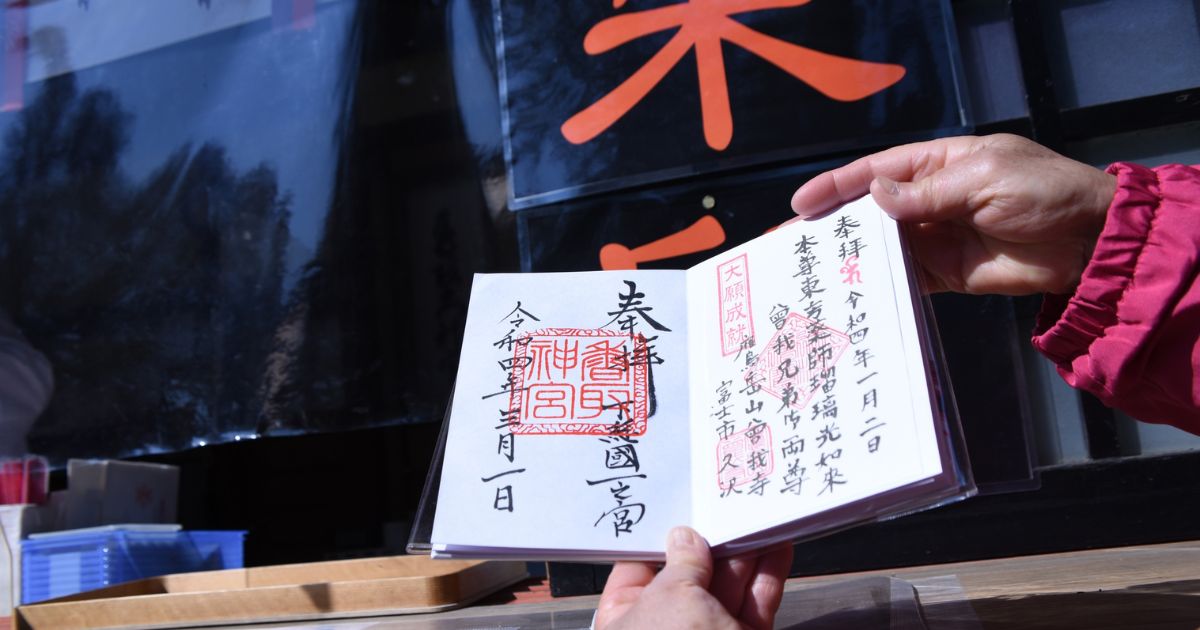 奉拝 令和四年一月二日
本尊東方薬師瑠璃光如来
曾我兄弟御両尊
岳山曾我寺
富士市久沢
大願成就
奉拝
下総國一之宮
香取
神宮
令和四年三月一日